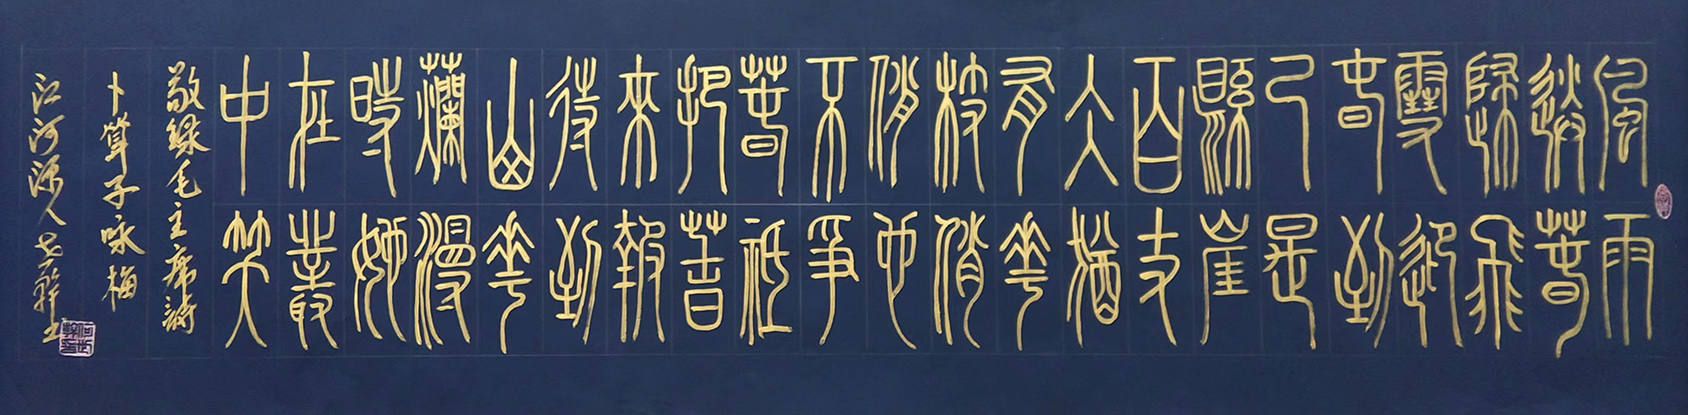 風雨
送春
歸飛
雪迎
春到
已是
縣崖
百丈
冰猶
有花
枝俏
俏也
不爭
春祇
把春
來報
待到
山花
爛漫
時她
在叢
中笑
敬録毛主席詩
卜算子咏梅
江河源人